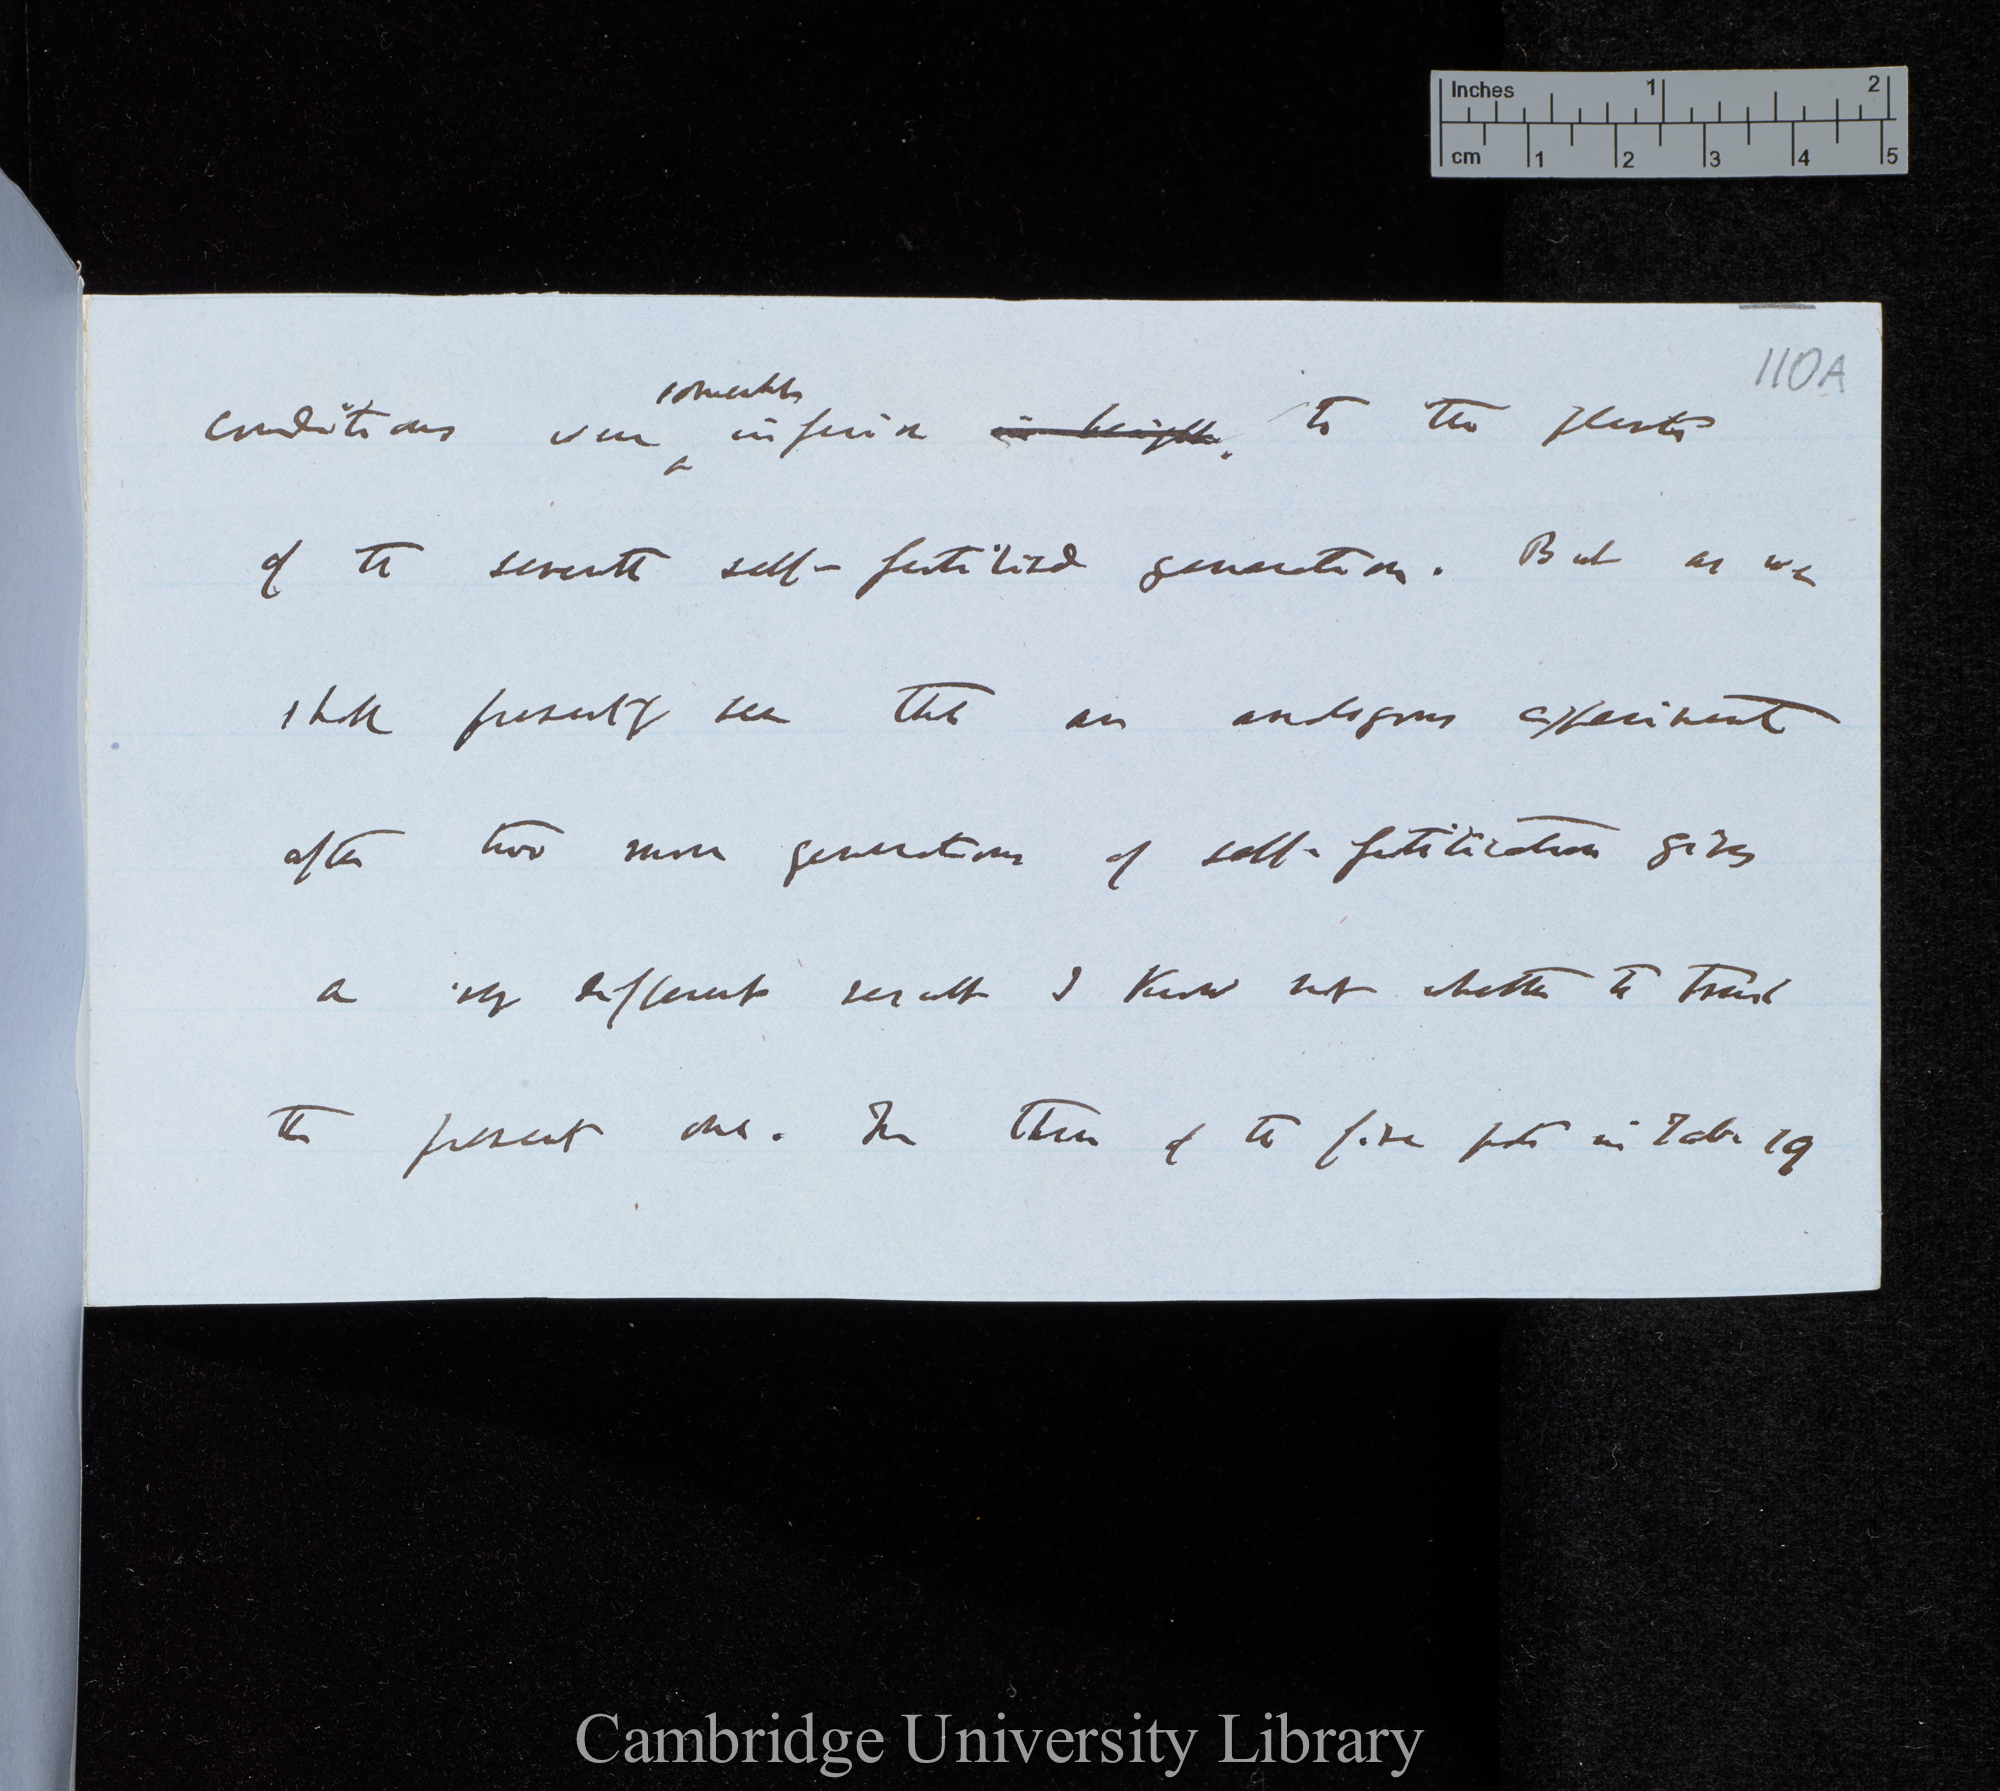 Inches 1 2
cm 1 2 3 4 5
110A
somewhat
conditions were inferior in height to the plants
of the seventh self-fertilised generation. But as we
shall presently see that an analogous experiment
after two more generations of self-fertilization gives
a very different result I know not whether to trust
the present one. In three of the five pots in Table 19
Cambridge University Library